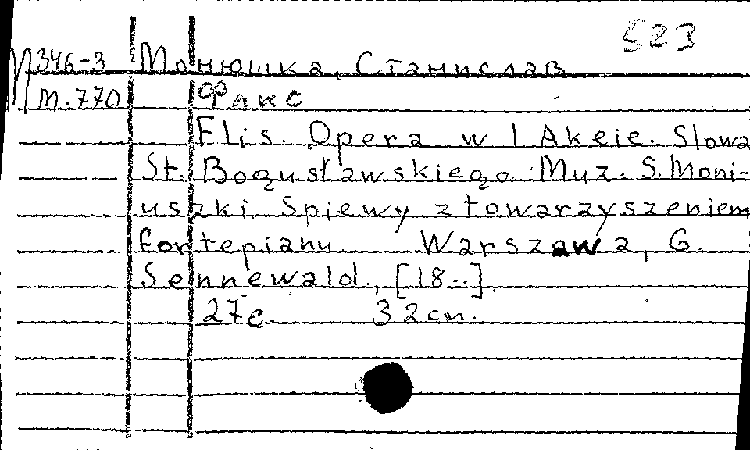 523
М346-3 Монюшка, Станислав
М.770 Флис
Flis. Opera w 1 Akcie. Slowa
St. Bogusławskiego. Muz. S. Moni-
uszki. Spiewy z towarzyszeniem
fortepianu. Warszawa, G.
Sennewald, [18..]
27c. 32cm.